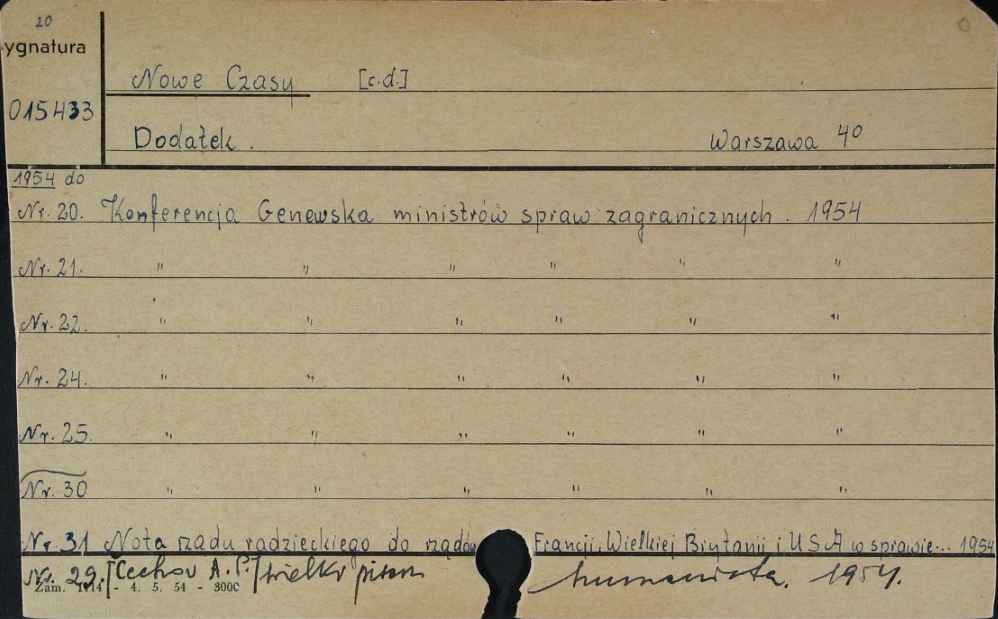 20
ygnatura
015433
Nowe Czasy [c.d.]
Dodatek. Warszawa 4°
1954 do
Nr. 20. Konferencja Genewska ministrów spraw zagranicznych. 1954
Nr. 21. " " " " " "
Nr. 22. " " " " " "
Nr. 24. " " " " " "
Nr. 25. " " " " " "
Nr. 30 " " " " " "
Nr. 31 Nota rządu radzieckiego do rządów Francji, Wielkiej Brytanii i USA w sprawie... 1954
Nr. 29. [Cechov A. P.] wielki pisarz humanista. 1954.
Zam. - 4. 5. 54 - 3000